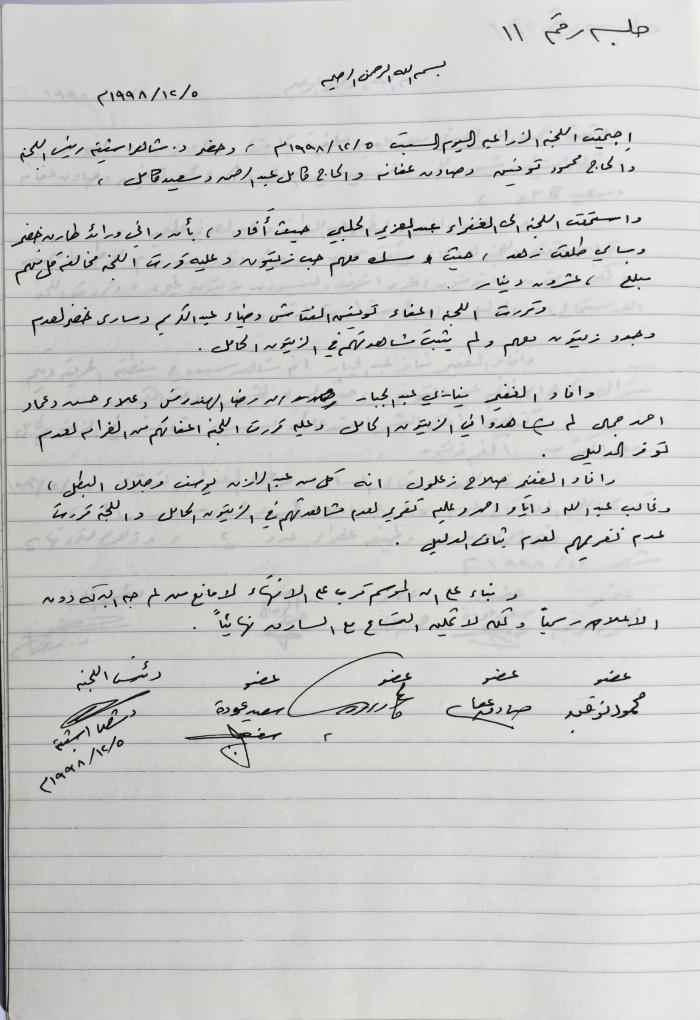 جلسه رقم ١١
بسم الله الرحمن الرحيم
١٩٩٨/١٢/٥م
اجتمعت اللجنة الزراعيه اليوم السبت ١٩٩٨/١٢/٥م ، وحضر د. شاكر اشتيه رئيس اللجنة
والحاج محمود توفيق وصادق عفانه والحاج كامل عبد الرحمن وسعيد كامل ،
واستمعت اللجنة الى الغفراء عبد العزيز الحلبي حيث أفاد ، بأن راني ورائد طارق خضر
وسامي طلعت زهد ، حيث مسك معهم حب زيتون وعليه قررت اللجنة مخالفة كل منهم
مبلغ ، عشرون دينار
وقررت اللجنة اعفاء توفيق الفتاش وضياء عبد الكريم وساري خضر لعدم
وجود زيتون معهم ولم يثبت مشاهدتهم في الزيتون الحامل .
وافاد الغفير عبد الجبار ان رضا الهندي وعلاء حسن وعماد
احمد جمال لم يشاهدوا في الزيتون الحامل وعليه قررت اللجنة اعفائهم من الغرامه لعدم
توفر الدليل .
وافاد الغفير صلاح زغلول انه كل من عبد الرازق يوسف وجلال البطل ،
وغالب عبد الله و احمد وعليه تقرير لعدم مشاهدتهم في الزيتون الحامل و اللجنة قررت
عدم تغريمهم لعدم ثبات الدليل .
وبناء على ان الموسم قرب على الانتهاء لا مانع من لم حبه البركه دون
الاعلان رسمياً ولكنه لا يمكن التسامح مع السارق نهائياً .
عضو عضو عضو عضو رئيس اللجنه
محمود توفيق صادق عفانه سعيد عودة د. شاكر اشتيه
١٩٩٨/١٢/٥م